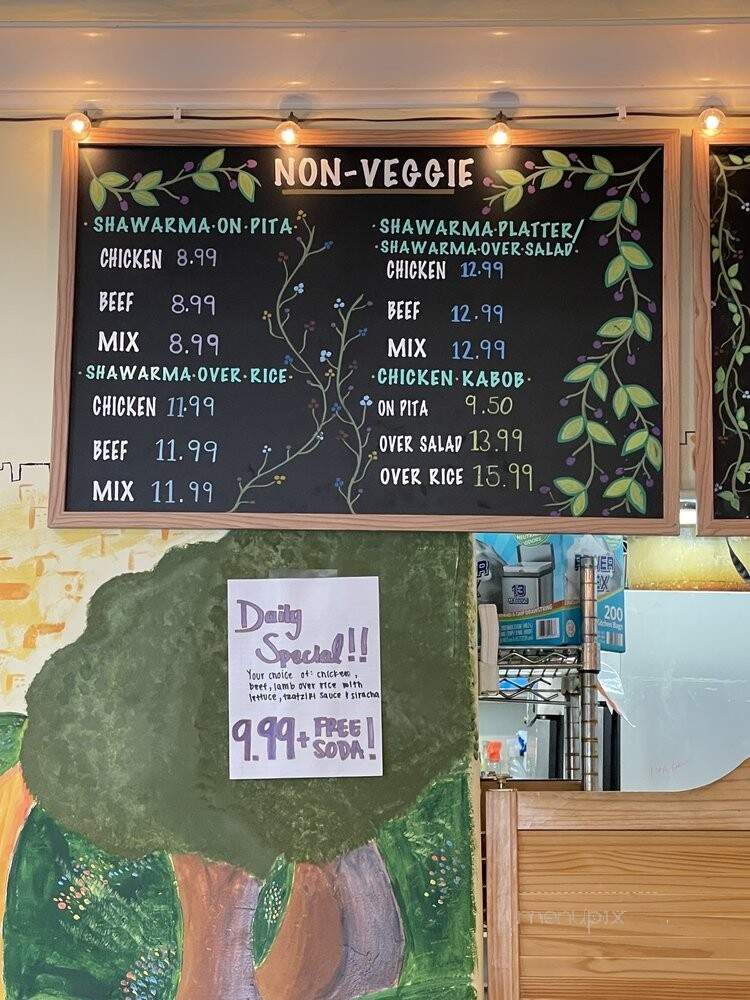 NON-VEGGIE
SHAWARMA ON PITA
CHICKEN 8.99
BEEF 8.99
MIX 8.99
SHAWARMA OVER RICE
CHICKEN 11.99
BEEF 11.99
MIX 11.99
SHAWARMA PLATTER/
SHAWARMA OVER SALAD
CHICKEN 12.99
BEEF 12.99
MIX 12.99
CHICKEN KABOB
ON PITA 9.50
OVER SALAD 13.99
OVER RICE 15.99
Daily
Special!!
Your choice of: chicken,
beef, lamb over rice with
lettuce, tzatziki sauce & siracha
9.99 + FREE
SODA!
13
200
menupix